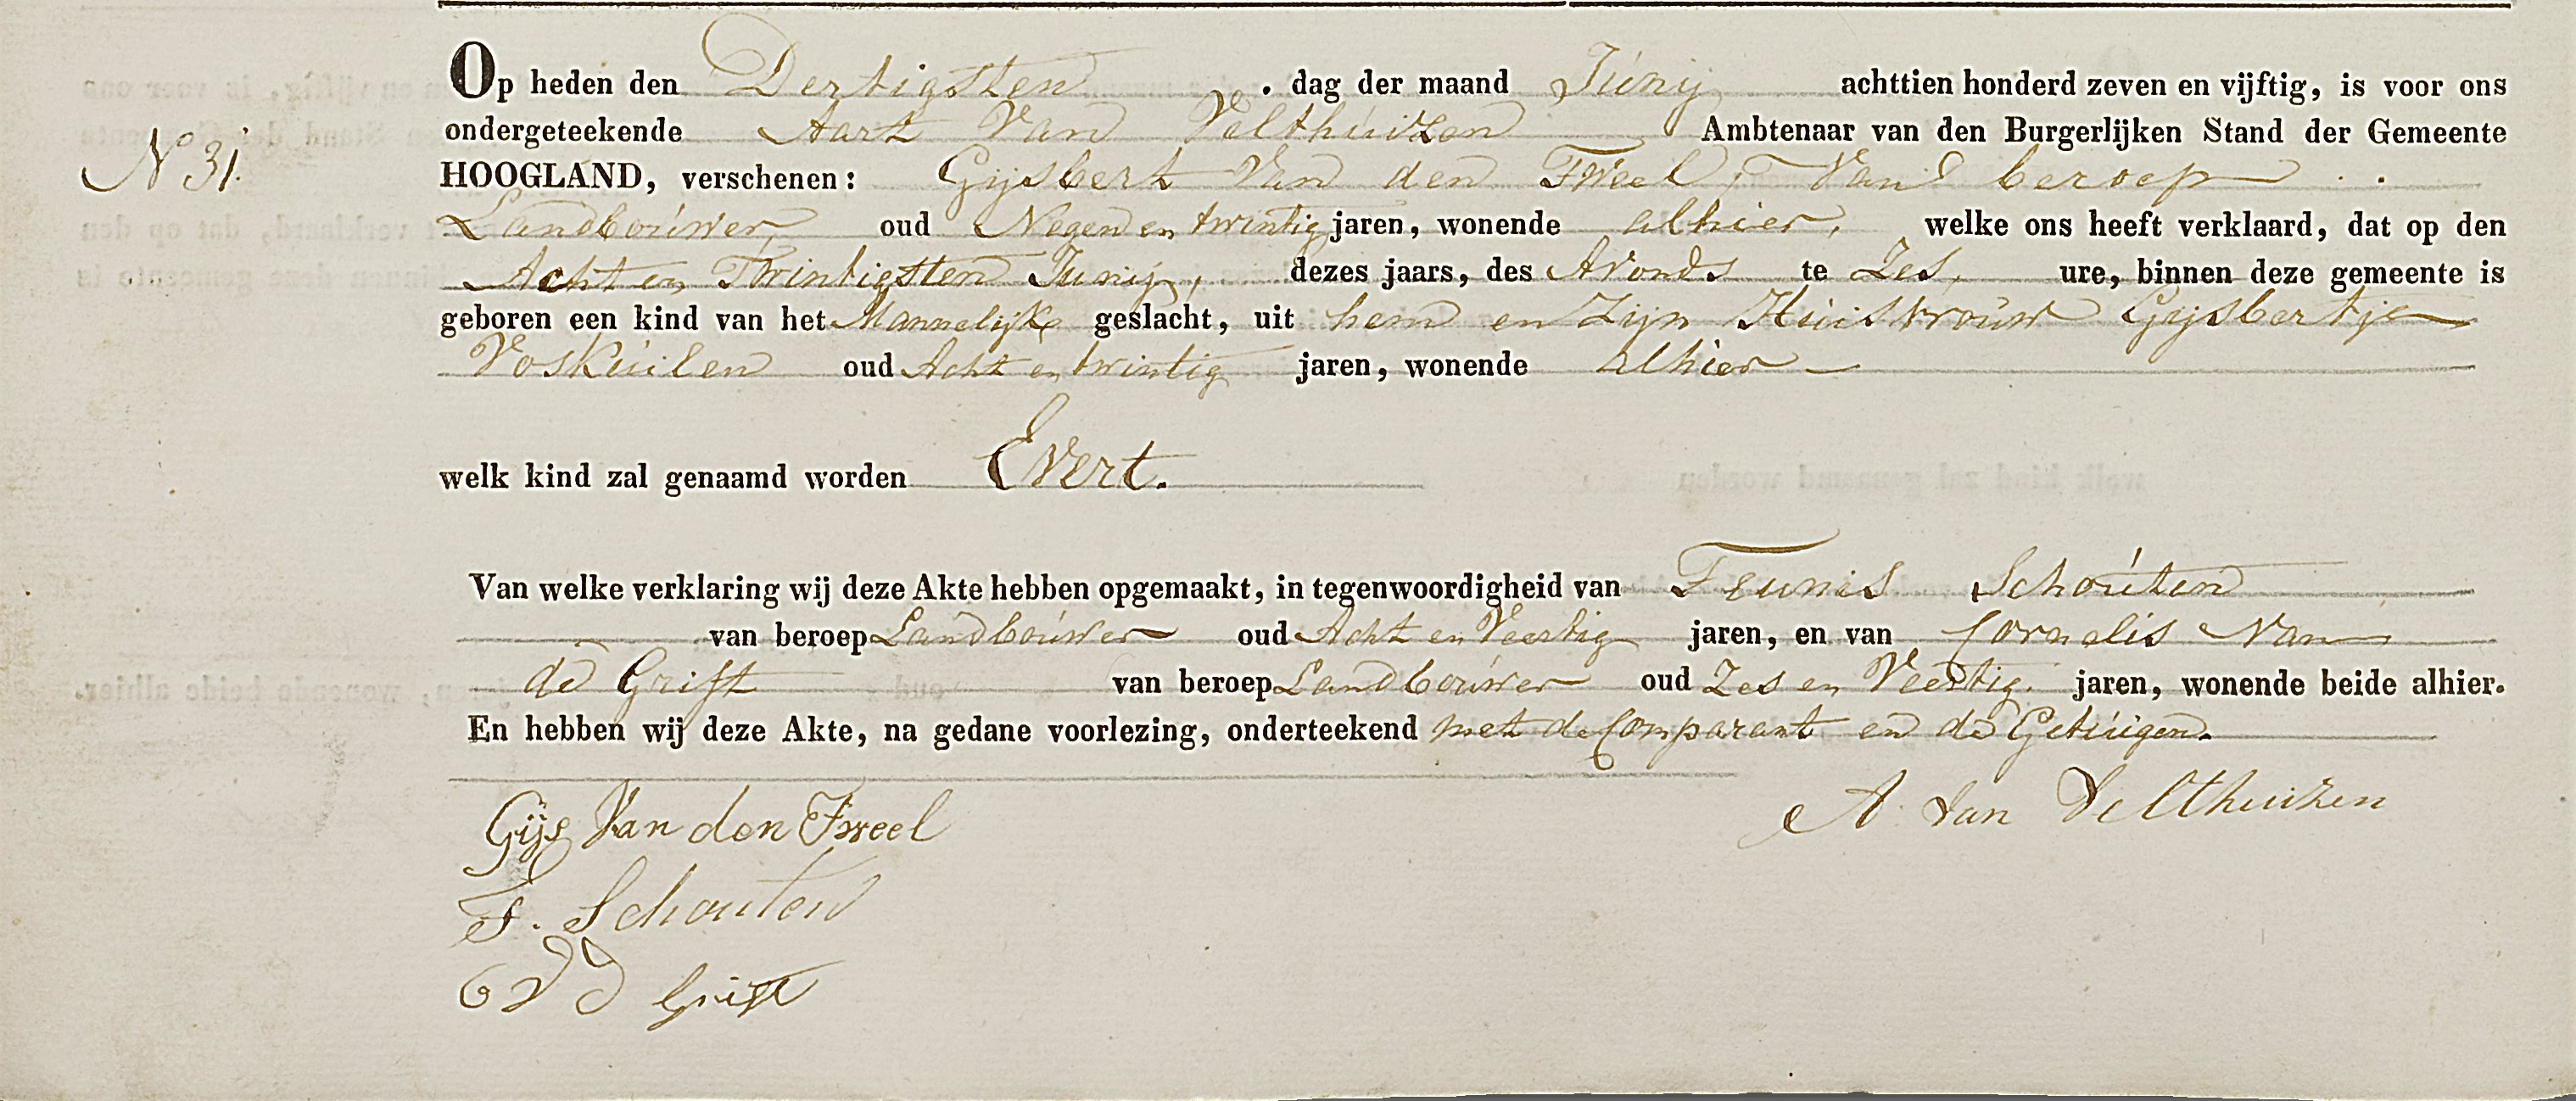 Op heden den Dertigsten . dag der maand Junij achttien honderd zeven en vijftig, is voor ons
ondergeteekende Aart Van Velthuizen Ambtenaar van den Burgerlijken Stand der Gemeente
N 31.
HOOGLAND, verschenen: Gijsbert Van den Tweel, Van beroep . .
Landbouwer, oud Negen en twintig jaren, wonende alhier, welke ons heeft verklaard, dat op den
Acht en Twintigsten Junij, dezes jaars, des Avonds te Zes, ure, binnen deze gemeente is
geboren een kind van het Mannelijke geslacht, uit hem en Zijn Huisvrouw Gijsbertje
Voskuilen oud Acht en twintig jaren, wonende alhier —
welk kind zal genaamd worden Evert.
Van welke verklaring wij deze Akte hebben opgemaakt, in tegenwoordigheid van Teunis Schouten
van beroep Landbouwer oud Acht en Veertig jaren, en van Cornelis Van
de Grift van beroep Landbouwer oud Zes en Veertig. jaren, wonende beide alhier.
En hebben wij deze Akte, na gedane voorlezing, onderteekend met de Comparant en de Getuigen.
Gijs Van den Tweel
A. Van Velthuizen
T. Schouten
C V D Grift